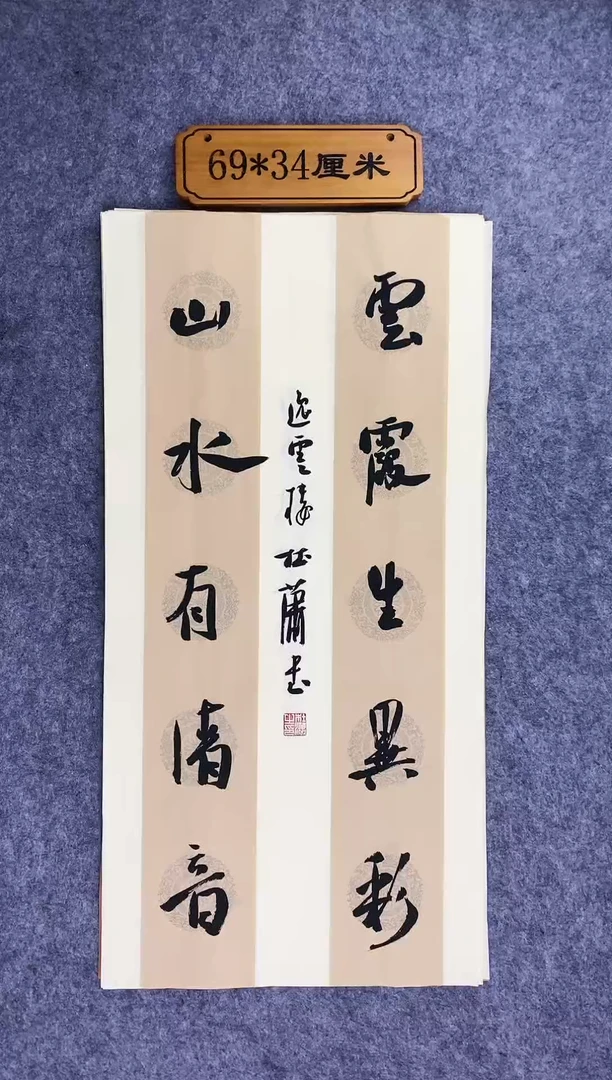 69*34厘米
雲霞生異彩
山水有清音
逸雲樓杜蕭書